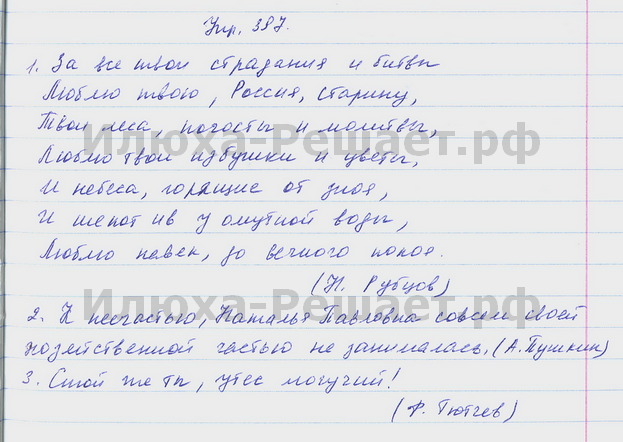 Упр. 387.
1. За все твои страдания и битвы
Люблю твою, Россия, старину,
Твои леса, погосты и молитвы,
Люблю твои избушки и цветы,
И небеса, горящие от зноя,
И шепот ив у омутной воды,
Люблю навек, до вечного покоя.
(Н. Рубцов)
2. К несчастью, Наталья Павловна совсем своей
хозяйственной частью не занималась. (А. Пушкин)
3. Стой же ты, утес могучий!
(Ф. Тютчев)
Илюха-Решает.рф
Илюха-Решает.рф